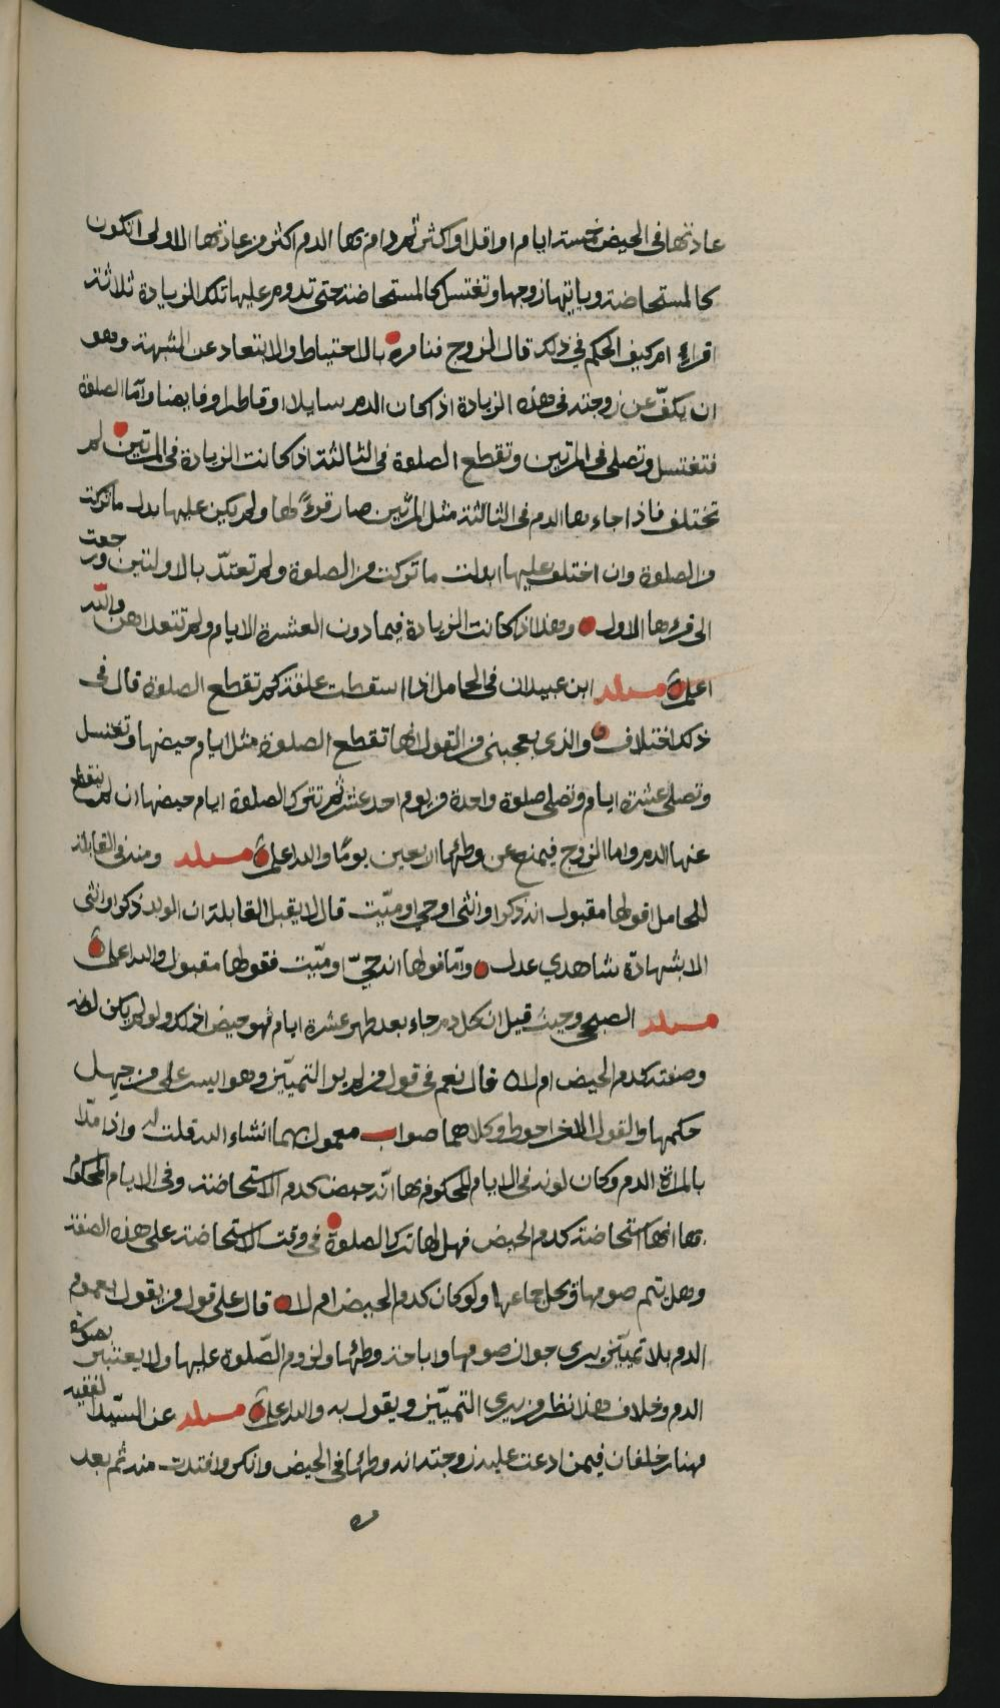 عادتها في الحيض خمسة ايام او اقل او اكثر ثم دام بها الدم اكثر من عادتها الاولى اتكون
كالمستحاضة وياتيها زوجها وتغتسل كالمستحاضة حتى تدوم عليها تلك الزيادة ثلاثة
اقراء ام كيف الحكم في ذلك قال الزوج فنامره بالاحتياط والابتعاد عن الشبهة وهو
ان يكفّ عن زوجته في هذه الزيادة اذا كان الدم سايلا او قاطرا او فايضا وامّا الصلوة
فتغتسل وتصلى في المرتين وتقطع الصلوة في الثالثة اذا كانت الزيادة في المرتين لم
تختلف فاذا جاء بها الدم في الثالثة مثل المرتين صار قرءً لها ولم يكن عليها بدل ما تركت
من الصلوة وان اختلف عليها ابدلت ما تركت من الصلوة ولم تعتدّ بالاولتين ورجعت
الى قرءها الاول وهذا اذا كانت الزيادة فيما دون العشرة الايام ولم تتعداهن والله
اعلم مسئلة ابن عبيدان في الحامل اذا اسقطت علقة كم تقطع الصلوة قال في
ذلك اختلاف والذي يعجبني من القول انها تقطع الصلوة مثل ايام حيضها وتغتسل
وتصلي عشرة ايام وتصلي صلوة واحدة من يوم احد عشر ثم تترك الصلوة ايام حيضها ان لم ينقطع
عنها الدم واما الزوج فيمنع عن وطئها اربعين يومًا والله اعلم مسئلة ومنه في القابلة
للحامل اقولها مقبول انه ذكر او انثى او حي او ميّت قال لا يقبل القابلة ان الولد ذكر او انثى
الا بشهادة شاهدي عدل وامّا قولها انه حيّ او ميّت فقولها مقبول والله اعلم
مسئلة الصبحي وحيث قيل ان كل دم جاء بعد طهر عشرة ايام فهو حيض اذلك ولو لم يكن لونه
وصفته كدم الحيض ام لا قال نعم في قول من لم ير التمييز وهو ايسر على من جهل
حكمها والقول الاخر احوط وكلاهما صواب معمول بهما انشاء الله قلت له واذا مدّ
بالمراة الدم وكان لونه في الايام المحكوم بها انّه حيض كدم الاستحاضة وفي الايام المحكوم
بها انها استحاضة كدم الحيض فهل لها ترك الصلوة في وقت الاستحاضة على هذه الصفة
وهل يتم صومها ويحل جماعها ولو كان كدم الحيض ام لا قال على قول من يقول بعموم
الدم بلا تمييز يرى جواز صومها واباحة وطئها ولزوم الصّلوة عليها ولا يعتبر بصورة
الدم وخلاف هذا نظر من يرى التمييز ويقول به والله اعلم مسئلة عن السيّد الفقيه
مهنا بن خلفان فيمن ادعت عليه زوجته انه وطئها في الحيض وانكر وافتدت منه ثم بعد